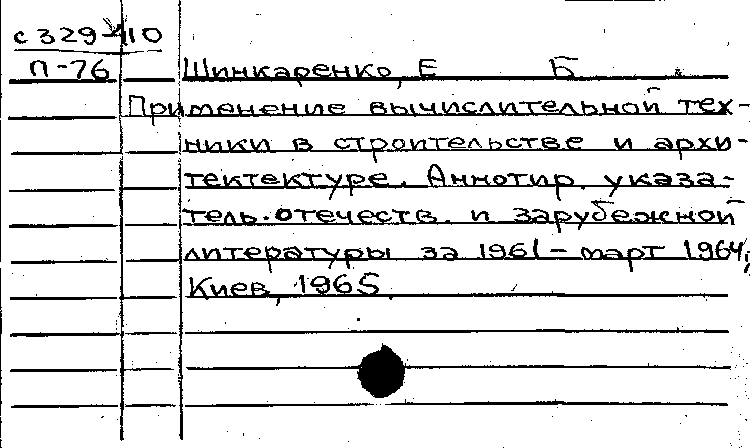 с329410
П-76 Шинкаренко, Е Б
Применение вычислительной тех-
ники в строительстве и архи-
тектектуре. Аннотир. указа-
тель. отечеств. и зарубежной
литературы за 1961-март 1964,
Киев, 1965